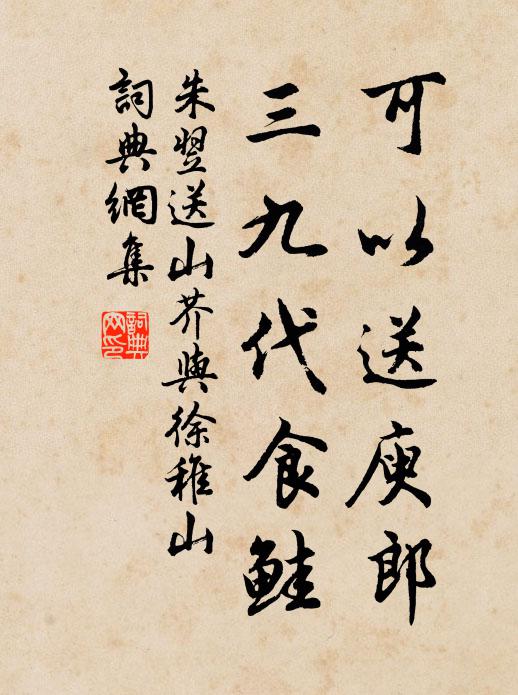 可以送庾郎
三九代食鮭
朱翌送山芥與徐稚山
詞典網集
詞典
网印